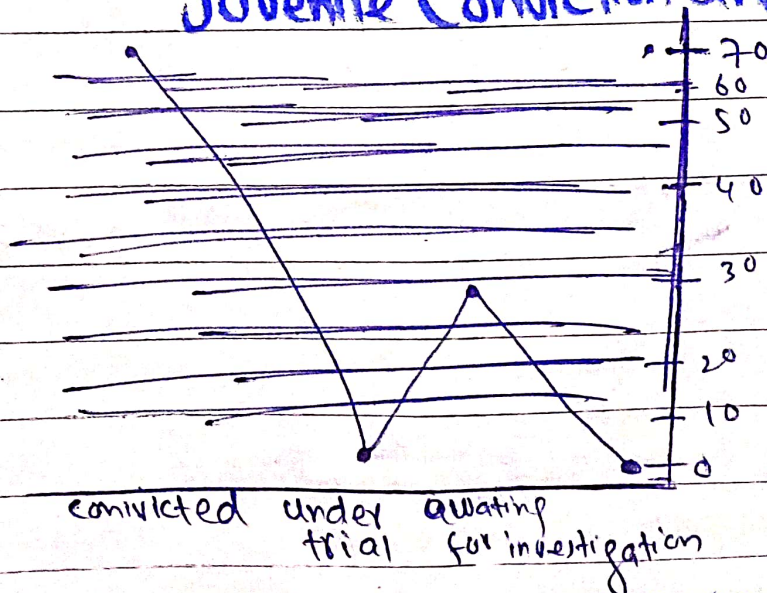 Juvenile Conviction
70
60
50
40
30
20
10
0
convicted under awating
trial for investigation